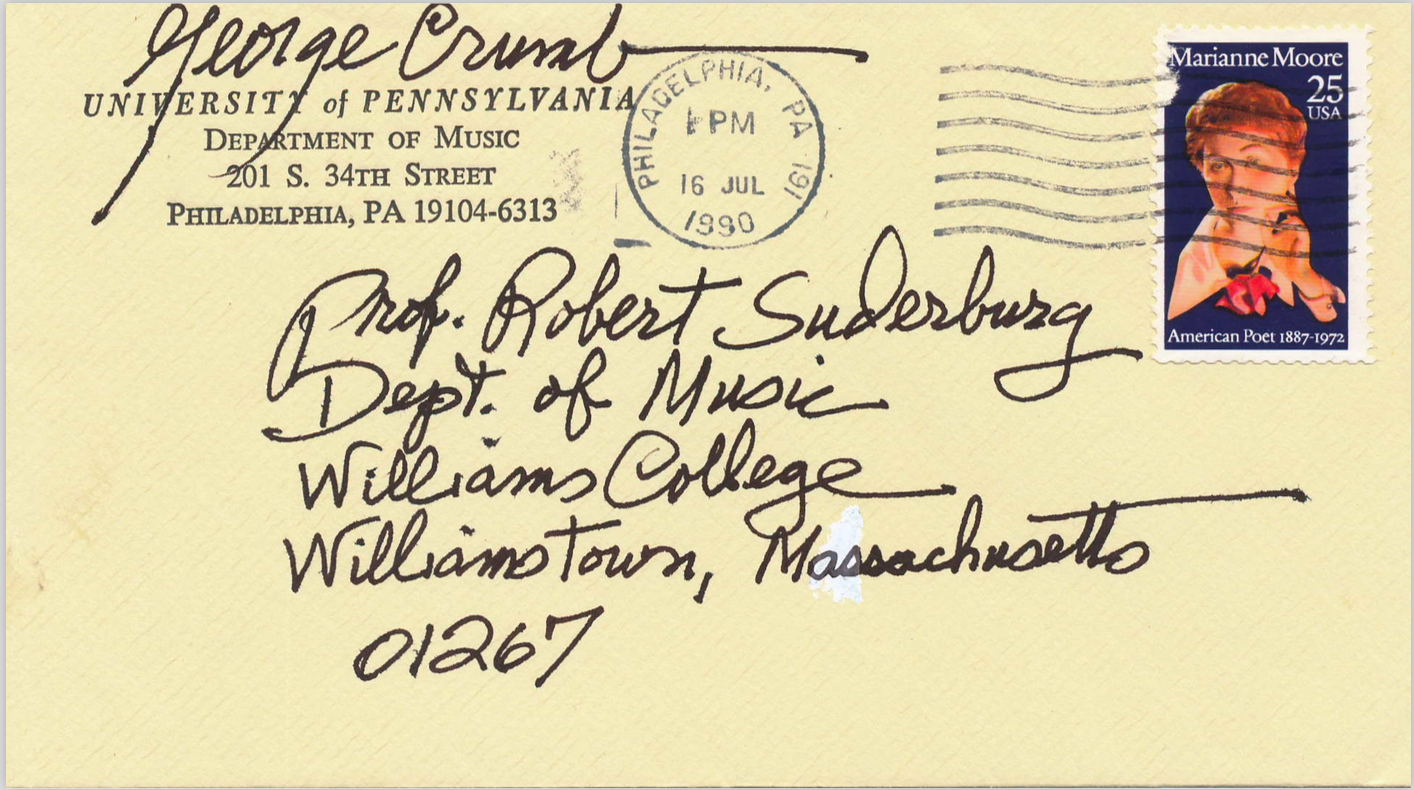 George Crumb
UNIVERSITY of PENNSYLVANIA
DEPARTMENT OF MUSIC
201 S. 34TH STREET
PHILADELPHIA, PA 19104-6313
PHILADELPHIA, PA 191
PM
16 JUL
1990
Marianne Moore
25
USA
American Poet 1887-1972
Prof. Robert Suderburg
Dept. of Music
Williams College
Williamstown, Massachusetts
01267